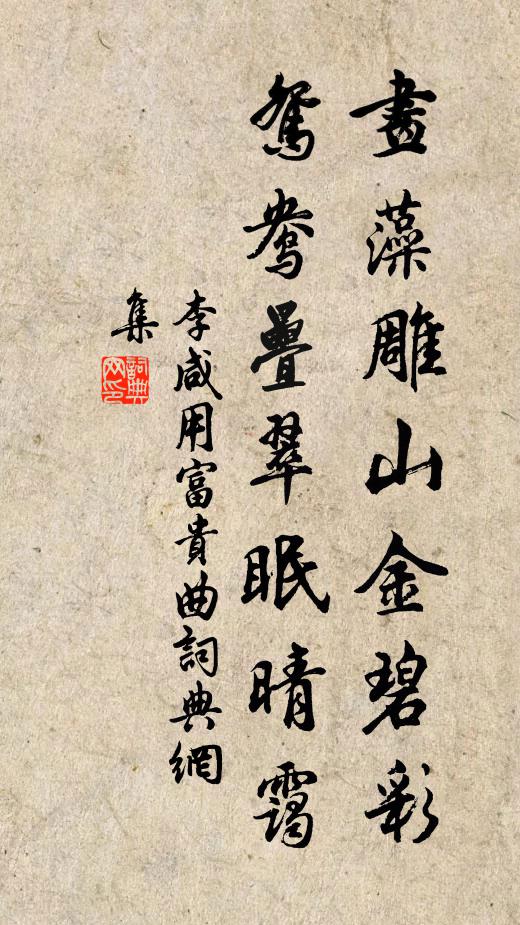 畫藻雕山金碧彩
鴛鴦疊翠眠晴靄
李咸用富貴曲詞典網
集
詞典